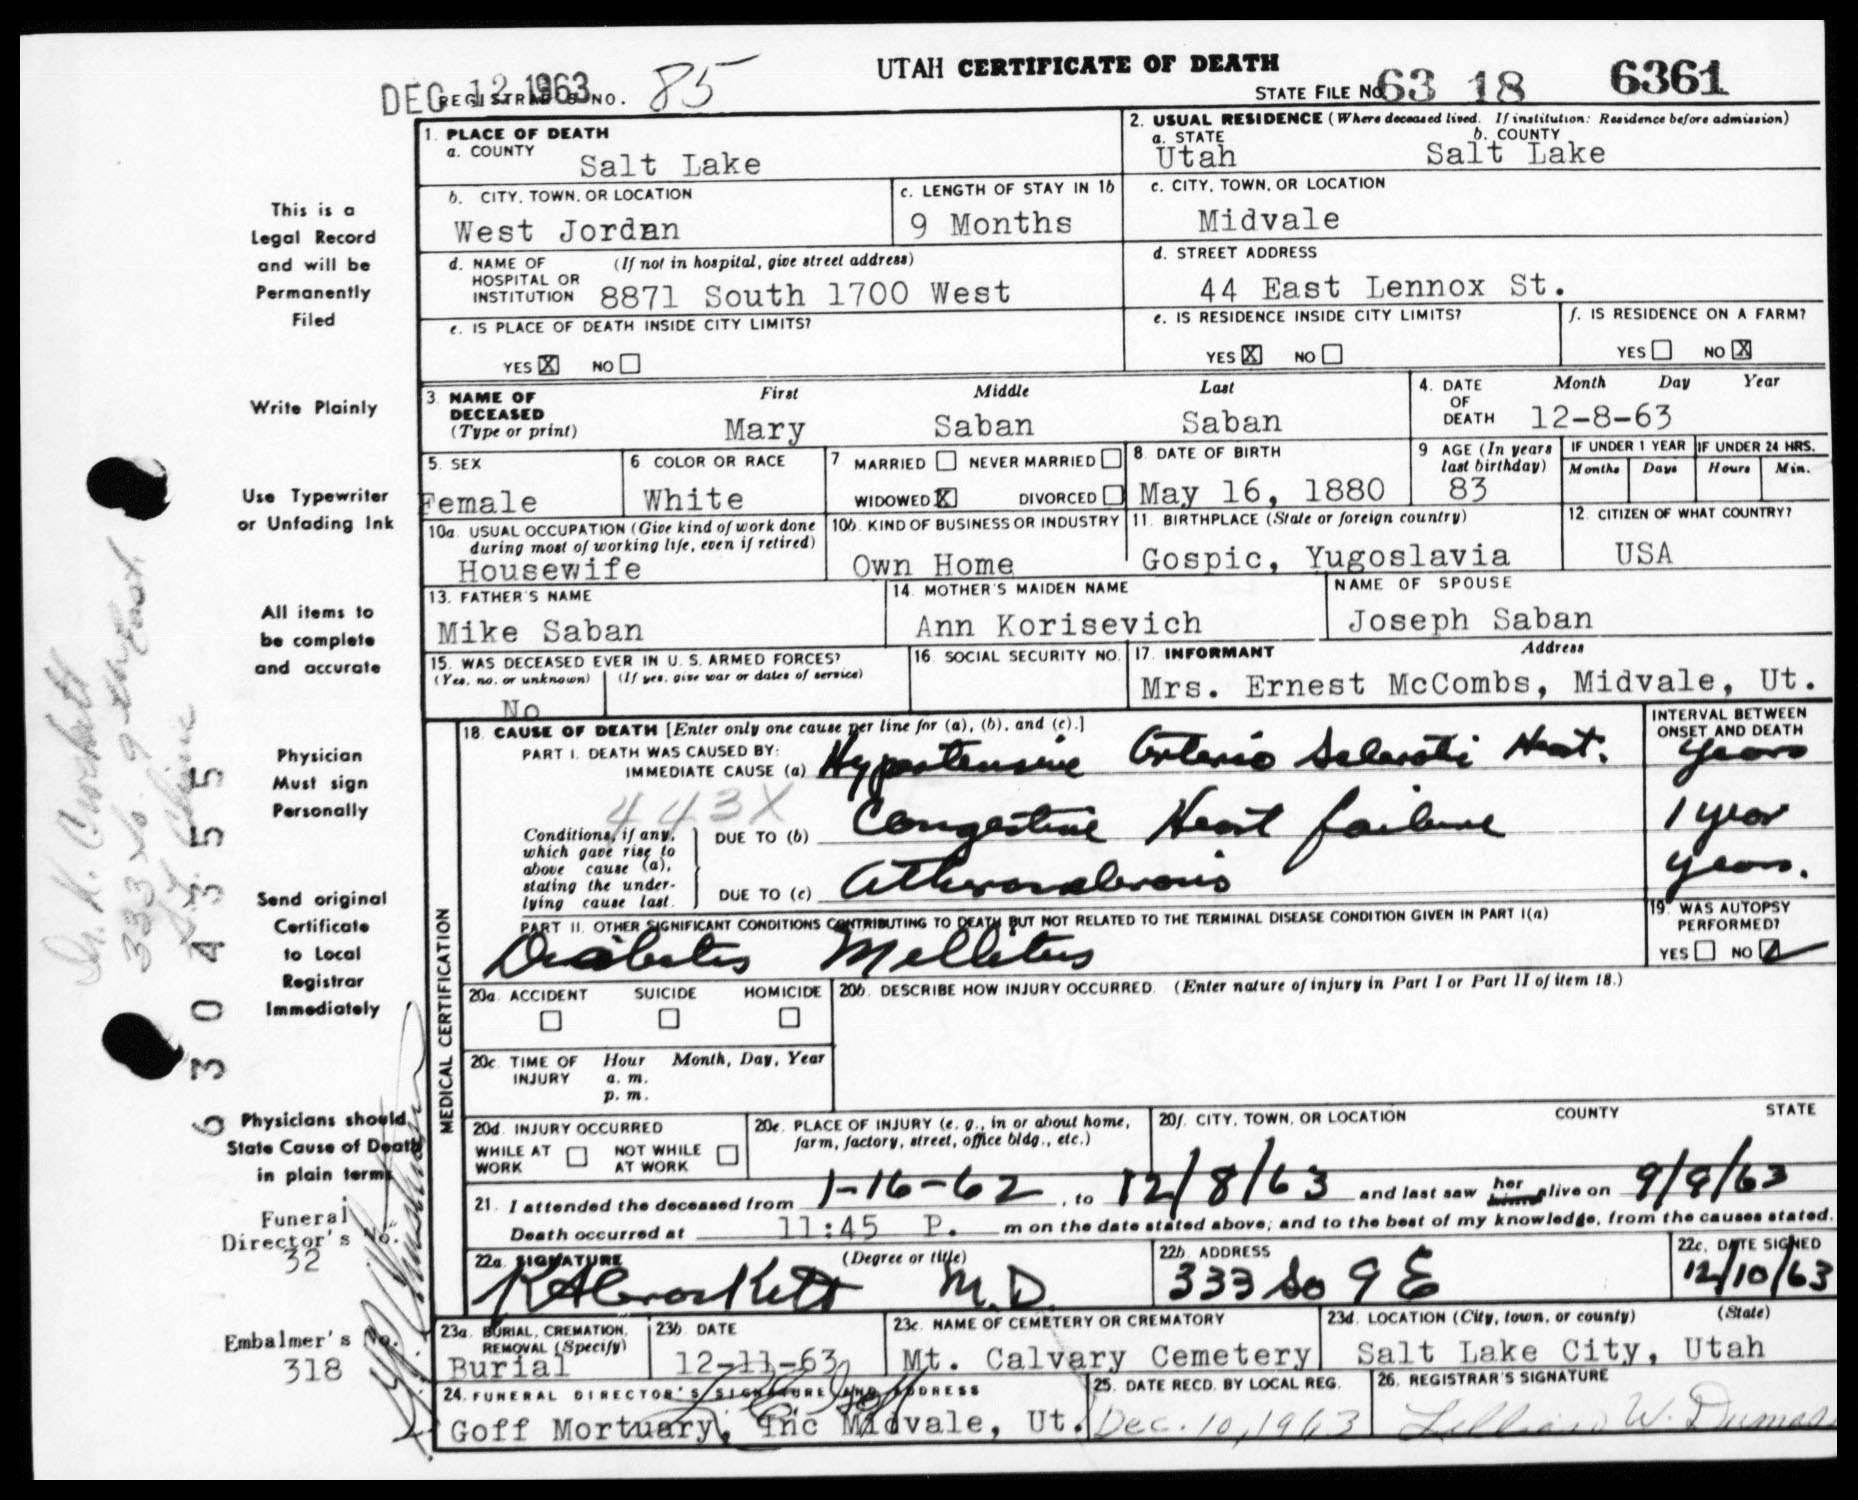 UTAH CERTIFICATE OF DEATH
DEC 12 1963 REGISTRAR'S NO. 85
STATE FILE NO. 63 18 6361
1. PLACE OF DEATH
a. COUNTY
Salt Lake
2. USUAL RESIDENCE (Where deceased lived. If institution: Residence before admission)
a. STATE b. COUNTY
Utah Salt Lake
b. CITY, TOWN, OR LOCATION
West Jordan
c. LENGTH OF STAY IN 1b
9 Months
c. CITY, TOWN, OR LOCATION
Midvale
d. NAME OF HOSPITAL OR INSTITUTION (If not in hospital, give street address)
8871 South 1700 West
d. STREET ADDRESS
44 East Lennox St.
e. IS PLACE OF DEATH INSIDE CITY LIMITS?
YES X NO
e. IS RESIDENCE INSIDE CITY LIMITS?
YES X NO
f. IS RESIDENCE ON A FARM?
YES NO X
3. NAME OF DECEASED (Type or print)
First Middle Last
Mary Saban Saban
4. DATE OF DEATH
Month Day Year
12-8-63
5. SEX
Female
6. COLOR OR RACE
White
7. MARRIED NEVER MARRIED
WIDOWED X DIVORCED
8. DATE OF BIRTH
May 16, 1880
9. AGE (In years last birthday)
83
IF UNDER 1 YEAR
Months Days
IF UNDER 24 HRS.
Hours Min.
10a. USUAL OCCUPATION (Give kind of work done during most of working life, even if retired)
Housewife
10b. KIND OF BUSINESS OR INDUSTRY
Own Home
11. BIRTHPLACE (State or foreign country)
Gospic, Yugoslavia
12. CITIZEN OF WHAT COUNTRY?
USA
13. FATHER'S NAME
Mike Saban
14. MOTHER'S MAIDEN NAME
Ann Korisevich
NAME OF SPOUSE
Joseph Saban
15. WAS DECEASED EVER IN U. S. ARMED FORCES?
(Yes, no, or unknown) (If yes, give war or dates of service)
No
16. SOCIAL SECURITY NO.
17. INFORMANT Address
Mrs. Ernest McCombs, Midvale, Ut.
MEDICAL CERTIFICATION
18. CAUSE OF DEATH [Enter only one cause per line for (a), (b), and (c).]
INTERVAL BETWEEN ONSET AND DEATH
PART I. DEATH WAS CAUSED BY:
IMMEDIATE CAUSE (a) Hypertensive Arterio Sclerotic Heart. years
443X
Conditions, if any, which gave rise to above cause (a), stating the underlying cause last.
DUE TO (b) Congestive Heart failure 1 year
DUE TO (c) Atherosclerosis years.
PART II. OTHER SIGNIFICANT CONDITIONS CONTRIBUTING TO DEATH BUT NOT RELATED TO THE TERMINAL DISEASE CONDITION GIVEN IN PART I(a)
Diabetes Mellitus
19. WAS AUTOPSY PERFORMED?
YES NO
20a. ACCIDENT SUICIDE HOMICIDE
20b. DESCRIBE HOW INJURY OCCURRED. (Enter nature of injury in Part I or Part II of item 18.)
20c. TIME OF INJURY
Hour Month, Day, Year
a. m.
p. m.
20d. INJURY OCCURRED
WHILE AT WORK NOT WHILE AT WORK
20e. PLACE OF INJURY (e. g., in or about home, farm, factory, street, office bldg., etc.)
20f. CITY, TOWN, OR LOCATION COUNTY STATE
21. I attended the deceased from 1-16-62, to 12/8/63 and last saw her him alive on 9/9/63
Death occurred at 11:45 P. m on the date stated above; and to the best of my knowledge, from the causes stated.
22a. SIGNATURE (Degree or title)
K A Crockett M.D.
22b. ADDRESS
333 So 9 E
22c. DATE SIGNED
12/10/63
23a. BURIAL, CREMATION, REMOVAL (Specify)
Burial
23b. DATE
12-11-63
23c. NAME OF CEMETERY OR CREMATORY
Mt. Calvary Cemetery
23d. LOCATION (City, town, or county) (State)
Salt Lake City, Utah
24. FUNERAL DIRECTOR'S SIGNATURE AND ADDRESS
Goff Mortuary, Inc Midvale, Ut.
25. DATE RECD. BY LOCAL REG.
Dec. 10, 1963
26. REGISTRAR'S SIGNATURE
Lillian W. Dumas
This is a
Legal Record
and will be
Permanently
Filed
Write Plainly
Use Typewriter
or Unfading Ink
All items to
be complete
and accurate
Physician
Must sign
Personally
Send original
Certificate
to Local
Registrar
Immediately
Physicians should
State Cause of Death
in plain terms
Funeral
Director's No.
32
Embalmer's No.
318
6304 3555
Dr. K. Crockett
333 So. 9th East